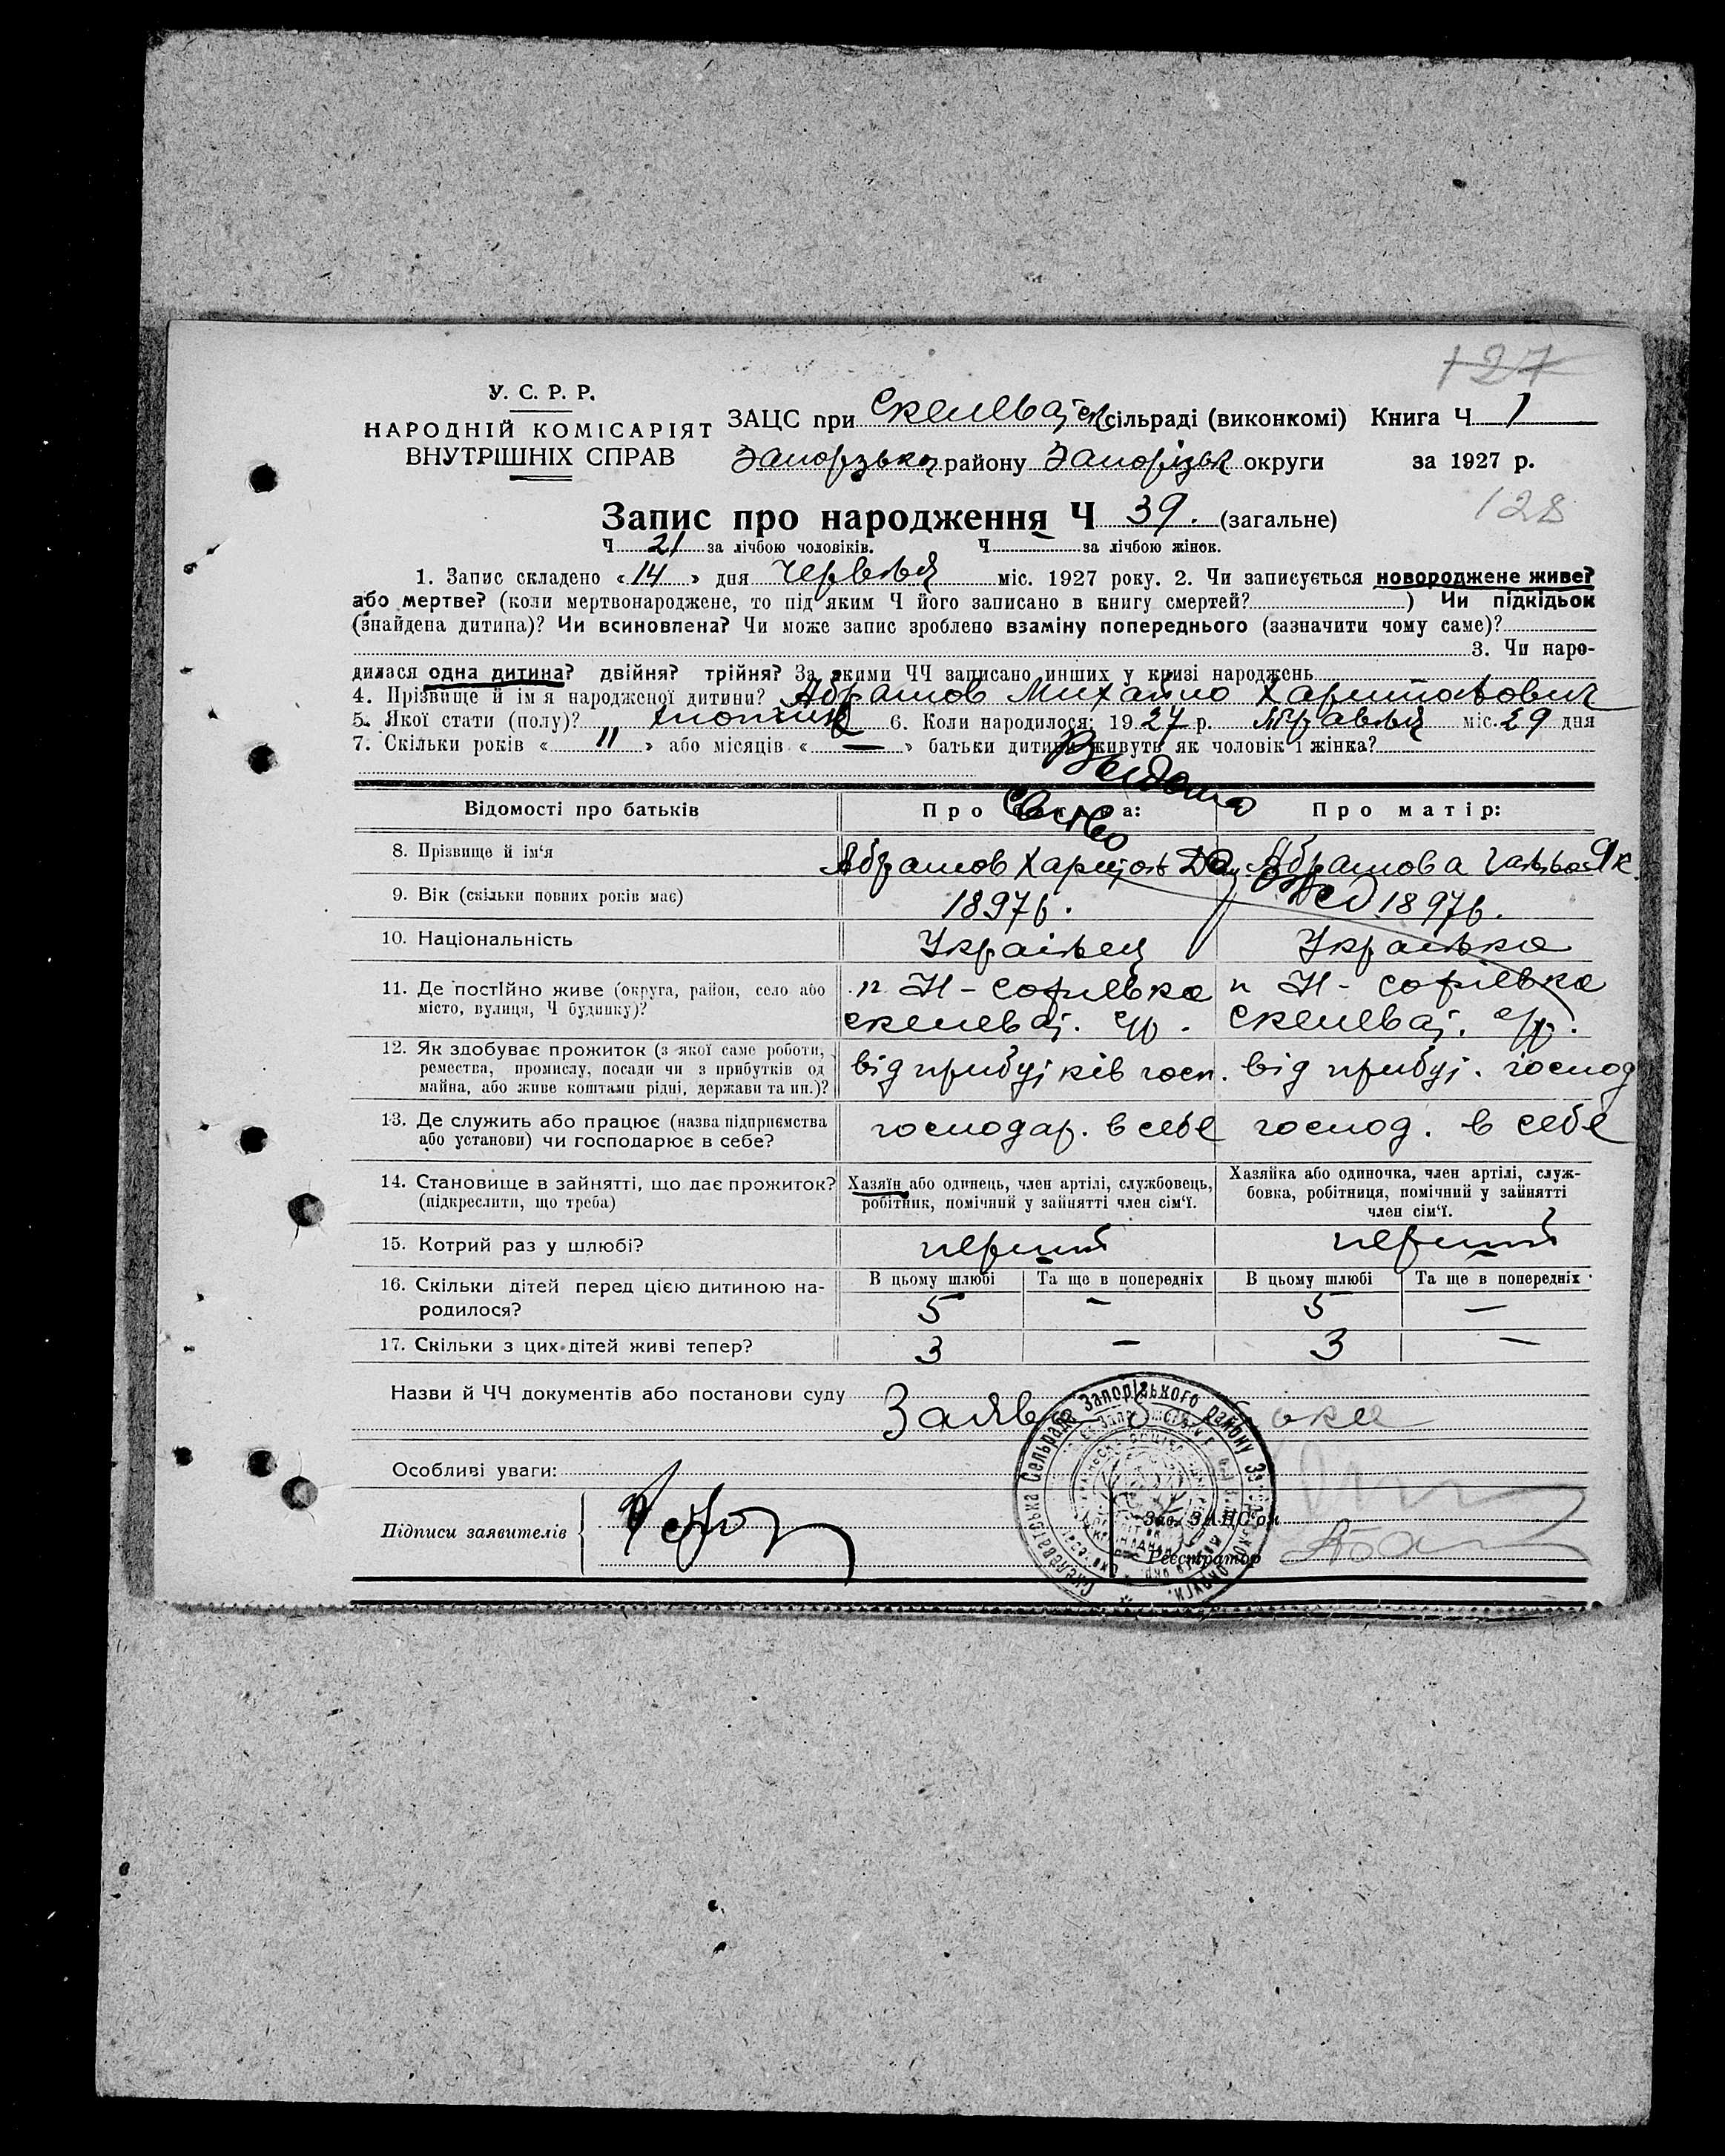 127
У. С. Р. Р.
НАРОДНІЙ КОМІСАРІЯТ
ВНУТРІШНІХ СПРАВ
ЗАЦС при Скелеват. сільраді (виконкомі) Книга Ч 1
Запорізьк. району Запорізьк. округи за 1927 р.
128
Запис про народження Ч 39. (загальне)
Ч 21 за лічбою чоловіків. Ч за лічбою жінок.
1. Запис складено «14» дня червня міс. 1927 року. 2. Чи записується новороджене живе?
або мертве? (коли мертвонароджене, то під яким Ч його записано в книгу смертей? ) Чи підкідьок
(знайдена дитина)? Чи всиновлена? Чи може запис зроблено взаміну попереднього (зазначити чому саме)?
3. Чи наро-
дилася одна дитина? двійня? трійня? За якими ЧЧ записано инших у кнізі народжень
4. Прізвище й ім'я народженої дитини? Абрамов Михайло Харитонович
5. Якої стати (полу)? хлопчик 6. Коли народилося: 1927 р. травня міс. 29 дня
7. Скільки років «11» або місяців «—» батьки дитини живуть як чоловік і жінка?
Видано
Відомості про батьків Про батька: Про матір:
8. Прізвище й ім'я Абрамов Харитон Дан. Абрамова Ганна Як.
9. Вік (скільки повних років має) 1897р. 1897р.
10. Національність Українец Українка
11. Де постійно живе (округа, район, село або п Н-Софіевка п Н-Софіевка
місто, вулиця, Ч будинку)? Скелеват. с/р. Скелеват. с/р.
12. Як здобуває прожиток (з якої саме роботи,
ремества, промислу, посади чи з прибутків од від прибутків госп. від прибут. господ
майна, або живе коштами рідні, держави та ин.)?
13. Де служить або працює (назва підприємства господар. в себе господ. в себе
або установи) чи господарює в себе?
14. Становище в зайнятті, що дає прожиток? Хазяїн або одинець, член артілі, службовець, Хазяйка або одиночка, член артілі, служ-
(підкреслити, що треба) робітник, помічний у зайнятті член сім'ї. бовка, робітниця, помічний у зайнятті
член сім'ї.
15. Котрий раз у шлюбі? перший перший
16. Скільки дітей перед цією дитиною на- В цьому шлюбі Та ще в попередніх В цьому шлюбі Та ще в попередніх
родилося? 5 – 5 –
17. Скільки з цих дітей живі тепер? 3 – 3 –
Назви й ЧЧ документів або постанови суду Заява
Особливі уваги:
Підписи заявителів
Зав. ЗАЦС'ом
Реєстратор
Скелеватська Сельрада Запорізького району